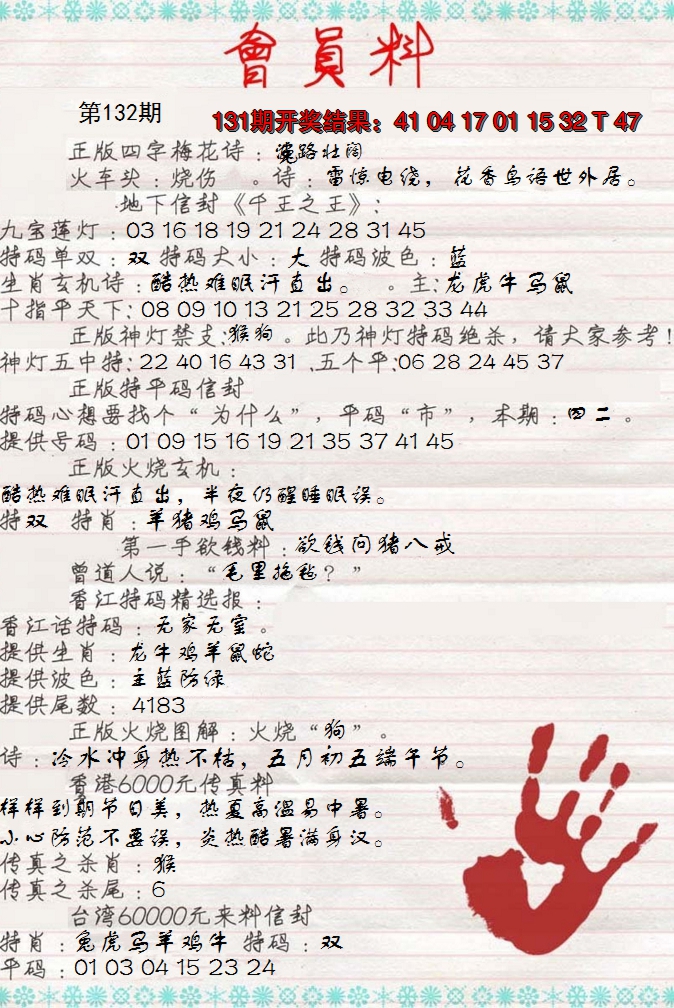 會員料
第132期
131期开奖结果：41 04 17 01 15 32 T 47
正版四字梅花诗：滝路壮阔
火车头：烧伤 。诗：雷惊电绕，花香鸟語世外居。
地下信封《千王之王》：
九宝莲灯：03 16 18 19 21 24 28 31 45
特码单双：双 特码大小：大 特码波色：蓝
生肖玄机诗：酷热难眠汗直出。 。主：龙虎牛马鼠
十指平天下：08 09 10 13 21 25 28 32 33 44
正版神灯禁支：猴狗。此乃神灯特码绝杀，请大家参考！
神灯五中特：22 40 16 43 31 、五个平：06 28 24 45 37
正版特平码信封
特码心想要找个“为什么”，平码“市”，本期：四二。
提供号码：01 09 15 16 19 21 35 37 41 45
正版火烧玄机：
酷热难眠汗直出，半夜仍醒睡眠误。
特双 特肖：羊猪鸡马鼠
第一手欲钱料：欲钱问猪八戒
曾道人说：“毛里拖毡？”
香江特码精选报：
香江话特码：无家无室。
提供生肖：龙牛鸡羊鼠蛇
提供波色：主蓝防绿
提供尾数：4183
正版火烧图解：火烧“狗”。
诗：冷水冲身热不枯，五月初五端午节。
香港6000元传真料
样样到期节日美，热夏高温易中暑。
小心防范不要误，炎热酷暑满身汉。
传真之杀肖：猴
传真之杀尾：6
台湾60000元来料信封
特肖：兔虎马羊鸡牛 特码：双
平码：01 03 04 15 23 24